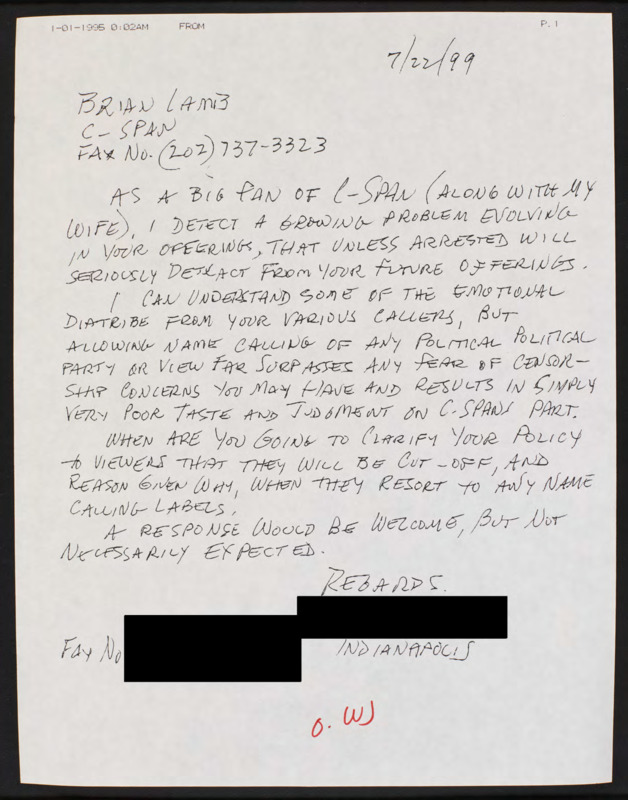 1-01-1995 0:02AM FROM P.1
7/22/99
BRIAN LAMB
C-SPAN
FAX NO. (202) 737-3323
AS A BIG FAN OF C-SPAN (ALONG WITH MY
WIFE), I DETECT A GROWING PROBLEM EVOLVING
IN YOUR OFFERINGS, THAT UNLESS ARRESTED WILL
SERIOUSLY DETRACT FROM YOUR FUTURE OFFERINGS.
I CAN UNDERSTAND SOME OF THE EMOTIONAL
DIATRIBE FROM YOUR VARIOUS CALLERS, BUT
ALLOWING NAME CALLING OF ANY POLITICAL POLITICAL
PARTY OR VIEW FAR SURPASSES ANY FEAR OF CENSOR-
SHIP CONCERNS YOU MAY HAVE AND RESULTS IN SIMPLY
VERY POOR TASTE AND JUDGMENT ON C-SPAN'S PART.
WHEN ARE YOU GOING TO CLARIFY YOUR POLICY
TO VIEWERS THAT THEY WILL BE CUT-OFF, AND
REASON GIVEN WHY, WHEN THEY RESORT TO ANY NAME
CALLING LABELS.
A RESPONSE WOULD BE WELCOME, BUT NOT
NECESSARILY EXPECTED.
REGARDS.
FAX NO INDIANAPOLIS
O. WJ